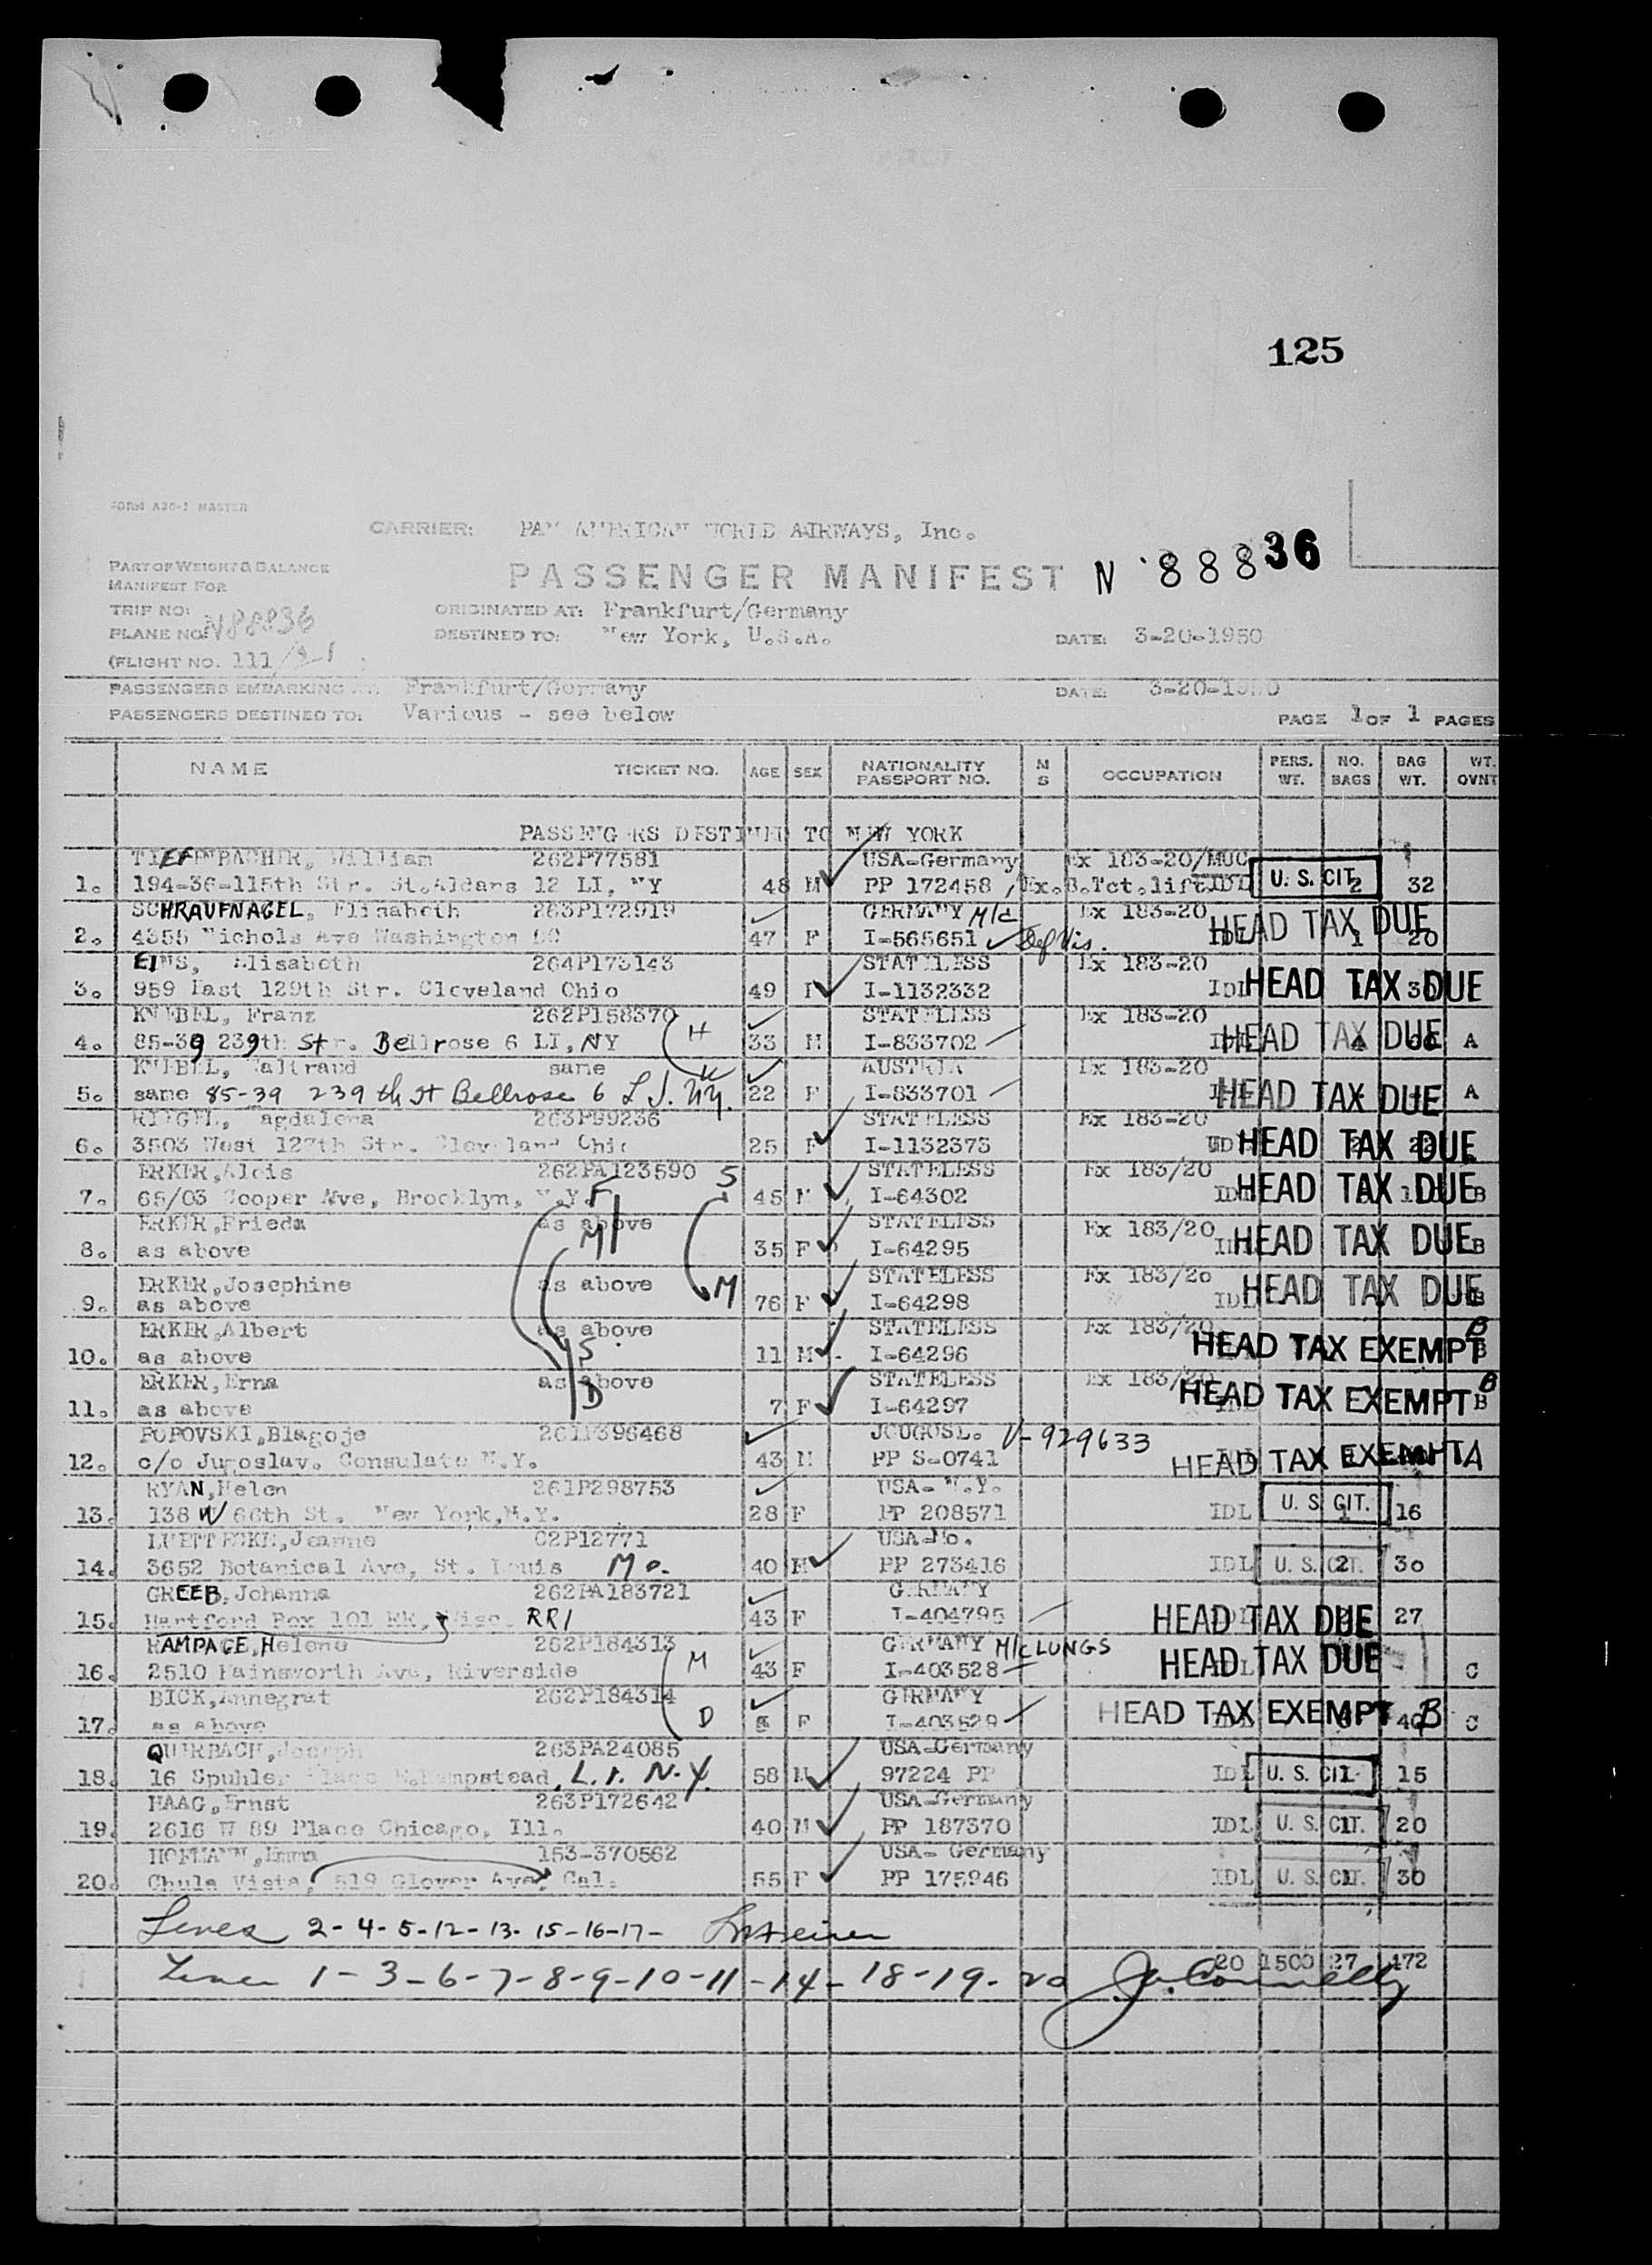 125
FORM A36-1 MASTER
CARRIER: PAN AMERICAN WORLD AIRWAYS, Inc.
PART OF WEIGHT & BALANCE
MANIFEST FOR
PASSENGER MANIFEST N 88836
TRIP NO:
PLANE NO: N88836
ORIGINATED AT: Frankfurt/Germany
DESTINED TO: New York, U.S.A. DATE: 3-20-1950
(FLIGHT NO. 111
PASSENGERS EMBARKING AT: Frankfurt/Germany DATE: 3-20-1950
PASSENGERS DESTINED TO: Various - see below PAGE 1 OF 1 PAGES
NAME TICKET NO. AGE SEX NATIONALITY PASSPORT NO. N S OCCUPATION PERS. WT. NO. BAGS BAG WT. WT. OVNT
PASSENGERS DESTINED TO NEW YORK
TIEFENBACHER, William 262P77581 USA-Germany Ex 183-20/MUC
1. 194-36-115th Str. St.Aldans 12 LI, NY 48 M PP 172458 / Ex.B.Tct.lift IDL U. S. CIT. 2 32
SCHRAUFNAGEL, Elisabeth 263P172919 GERMANY M/c Ex 183-20
2. 4355 Nichols Ave Washington DC 47 F I-565651 Def Vis. IDL HEAD TAX DUE 1 20
EINS, Elisabeth 264P173143 STATELESS Ex 183-20
3. 959 East 129th Str. Cleveland Ohio 49 F I-1132332 IDL HEAD TAX DUE
KNEBEL, Franz 262P158370 STATELESS Ex 183-20
4. 85-39 239th Str. Bellrose 6 LI, NY H 33 M I-833702 HEAD TAX DUE A
KNEBEL, Waltraud same W AUSTRIA Ex 183-20
5. same 85-39 239th St Bellrose 6 L.I. N.Y. 22 F I-833701 HEAD TAX DUE A
RIEGEL, Magdalena 263P99236 STATELESS Ex 183-20
6. 3503 West 127th Str. Cleveland Ohio 25 F I-1132373 IDL HEAD TAX DUE
ERKER, Alois 262PA123590 S STATELESS Ex 183/20
7. 65/03 Cooper Ave, Brooklyn, N.Y. F 45 M I-64302 IDL HEAD TAX DUE B
ERKER, Frieda as above M STATELESS Ex 183/20
8. as above 35 F I-64295 HEAD TAX DUE B
ERKER, Josephine as above STATELESS Ex 183/20
9. as above M 76 F I-64298 IDL HEAD TAX DUE B
ERKER, Albert as above STATELESS Ex 183/20 B
10. as above S 11 M I-64296 HEAD TAX EXEMPT B
ERKER, Erna as above STATELESS Ex 183/20 B
11. as above D 7 F I-64297 HEAD TAX EXEMPT B
POPOVSKI, Blagoje 261P396468 JOUGOSL. V-929633
12. c/o Jugoslav. Consulate N.Y. 43 M PP S-0741 HEAD TAX EXEMPT A
RYAN, Helen 261P298753 USA- N.Y.
13. 138 W 66th St. New York, N.Y. 28 F PP 208571 IDL U. S. CIT. 1 16
02P12771 USA-Mo.
14. 3652 Botanical Ave, St. Louis Mo. 40 PP 273416 IDL U. S. CIT. 2 30
GREEB, Johanna 262PA183721 GERMANY
15. Hartford Box 101 RR, Wisc. RR1 43 F I-404795 HEAD TAX DUE 27
RAMPAGE, Helene 262P184313 GERMANY M/C LUNGS
16. 2510 Fainsworth Ave, Riverside M 43 F I-403528 HEAD TAX DUE C
BICK, Annegret 262P184314 GERMANY
17. as above D F I-403529 HEAD TAX EXEMPT 40 B C
QUERBACH, Joseph 263PA24085 USA-Germany
18. 16 Spuhler Place N.Hempstead, L.I. N.Y. 58 M 97224 PP IDL U. S. CIT. 1 15
HAAG, Ernst 263P172642 USA-Germany
19. 2616 W 89 Place Chicago, Ill. 40 M PP 187370 IDL U. S. CIT. 1 20
HOFMANN, Emma 153-370562 USA- Germany
20. Chula Vista, 519 Glover Ave, Cal. 55 F PP 175946 IDL U. S. CIT. 1 30
Lines 2-4-5-12-13-15-16-17-
20 1500 27 472
Lines 1-3-6-7-8-9-10-11-14-18-19-20 J. Connelly